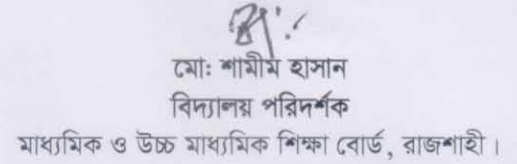 মোঃ শামীম হাসান
বিদ্যালয় পরিদর্শক
মাধ্যমিক ও উচ্চ মাধ্যমিক শিক্ষা বোর্ড, রাজশাহী।